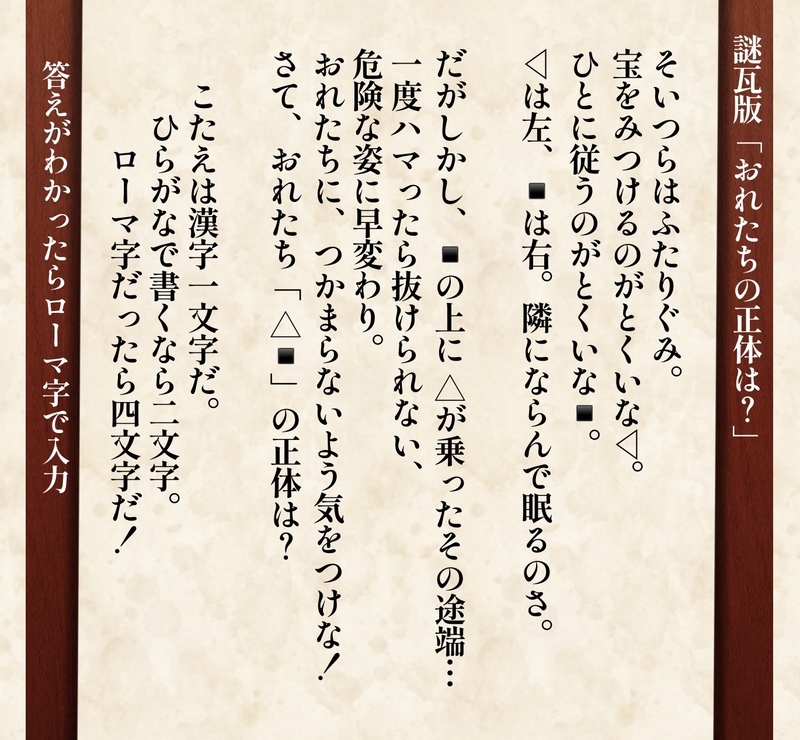 謎瓦版「おれたちの正体は？」
そいつらはふたりぐみ。
宝をみつけるのがとくいな◁。
ひとに従うのがとくいな■。
◁は左、■は右。隣にならんで眠るのさ。
だがしかし、■の上に△が乗ったその途端…
一度ハマったら抜けられない、
危険な姿に早変わり。
おれたちに、つかまらないよう気をつけな！
さて、おれたち「△■」の正体は？
こたえは漢字一文字だ。
ひらがなで書くなら二文字。
ローマ字だったら四文字だ！
答えがわかったらローマ字で入力